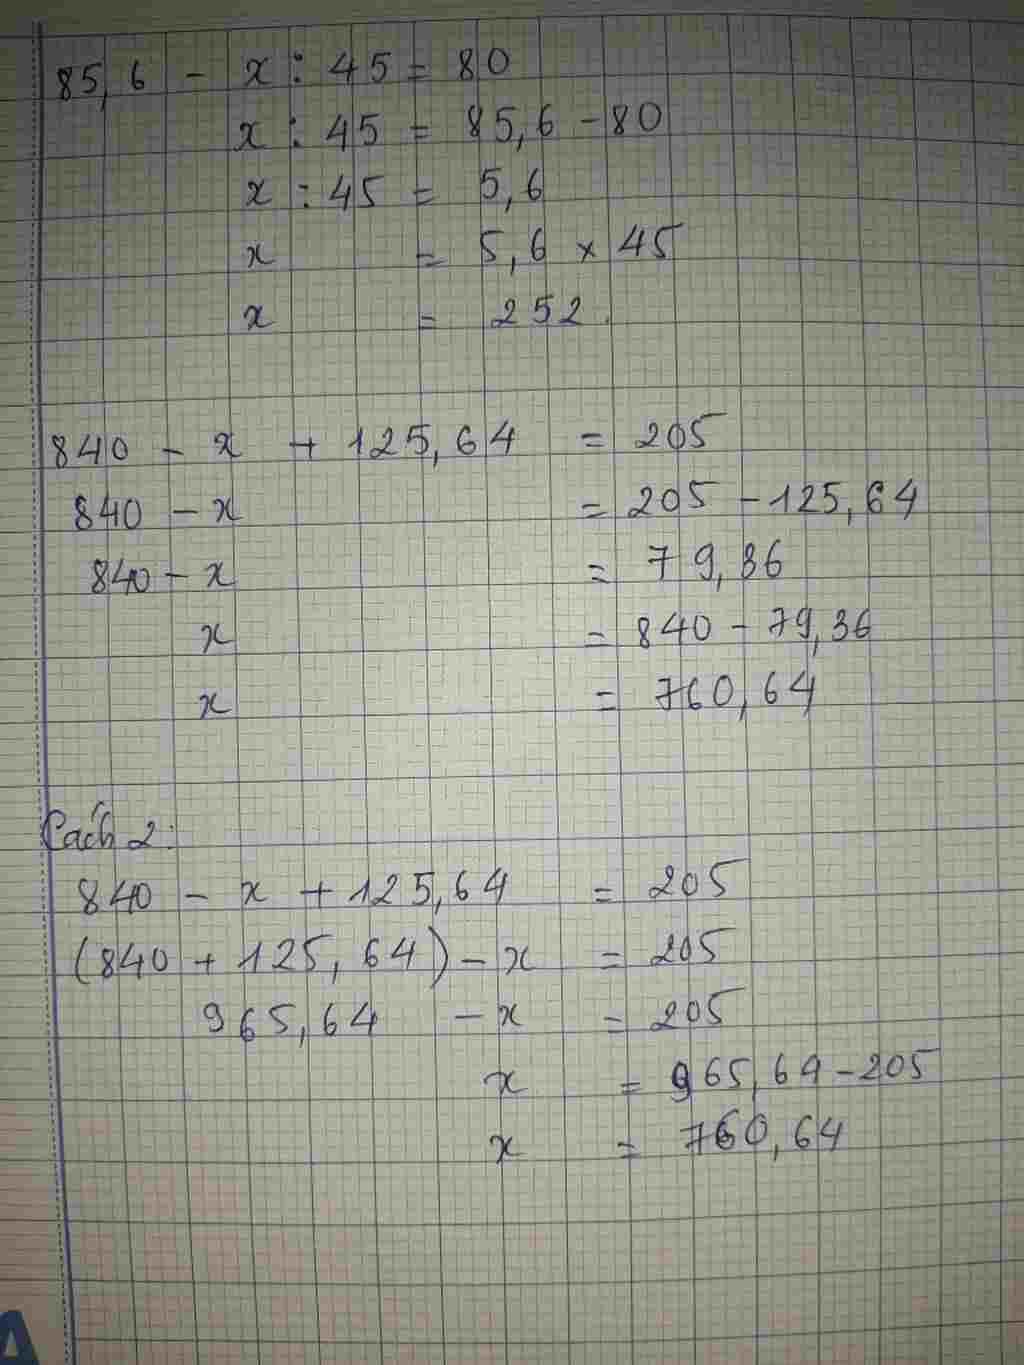 85,6 - x : 45 = 80
x : 45 = 85,6 - 80
x : 45 = 5,6
x = 5,6 × 45
x = 252.
840 - x + 125,64 = 205
840 - x = 205 - 125,64
840 - x = 79,36
x = 840 - 79,36
x = 760,64
Cách 2:
840 - x + 125,64 = 205
(840 + 125,64) - x = 205
965,64 - x = 205
x = 965,64 - 205
x = 760,64
A